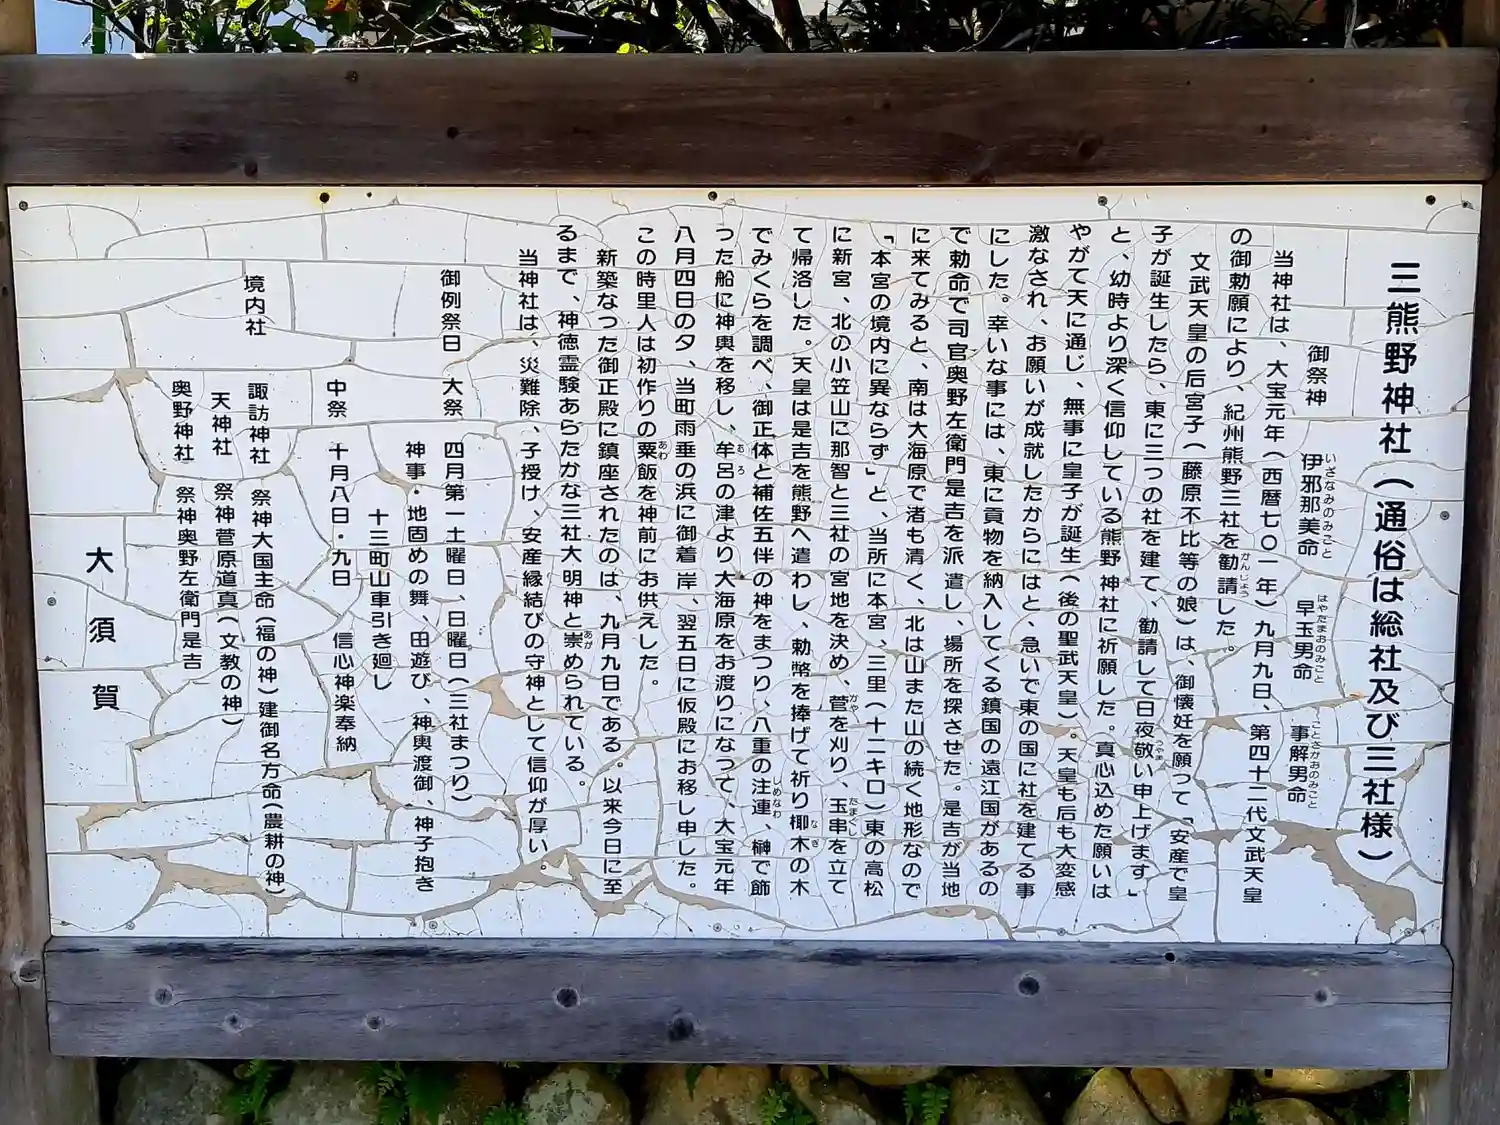 三熊野神社（通俗は総社及び三社様）
御祭神　伊邪那美命　早玉男命　事解男命
いざなみのみこと　はやたまおのみこと　ことさかおのみこと
当神社は、大宝元年（西暦七〇一年）九月九日、第四十二代文武天皇
の御勅願により、紀州熊野三社を勧請した。
かんじょう
文武天皇の后宮子（藤原不比等の娘）は、御懐妊を願って「安産で皇
子が誕生したら、東に三つの社を建て、勧請して日夜敬い申上げます」
うやま
と、幼時より深く信仰している熊野神社に祈願した。真心込めた願いは
やがて天に通じ、無事に皇子が誕生（後の聖武天皇）。天皇も后も大変感
激なされ、お願いが成就したからにはと、急いで東の国に社を建てる事
にした。幸いな事には、東に貢物を納入してくる鎮国の遠江国があるの
で勅命で司官奥野左衛門是吉を派遣し、場所を探させた。是吉が当地
に来てみると、南は大海原で渚も清く、北は山また山の続く地形なので
「本宮の境内に異ならず」と、当所に本宮、三里（十二キロ）東の高松
に新宮、北の小笠山に那智と三社の宮地を決め、菅を刈り、玉串を立て
かや　たまぐし
て帰洛した。天皇は是吉を熊野へ遣わし、勅幣を捧げて祈り梛木の木
なぎ
でみくらを調べ、御正体と補佐五伴の神をまつり、八重の注連、榊で飾
しめなわ
った船に神輿を移し、牟呂の津より大海原をお渡りになって、大宝元年
むろ
八月四日の夕、当町雨垂の浜に御着岸、翌五日に仮殿にお移し申した。
この時里人は初作りの粟飯を神前にお供えした。
あわ
新築なった御正殿に鎮座されたのは、九月九日である。以来今日に至
るまで、神徳霊験あらたかな三社大明神と崇められている。
あが
当神社は、災難除、子授け、安産縁結びの守神として信仰が厚い。
御例祭日　大祭　四月第一土曜日、日曜日（三社まつり）
神事・地固めの舞、田遊び、神輿渡御、神子抱き
十三町山車引き廻し
中祭　十月八日・九日　信心神楽奉納
境内社　諏訪神社　祭神大国主命（福の神）建御名方命（農耕の神）
天神社　祭神菅原道真（文教の神）
奥野神社　祭神奥野左衛門是吉
大須賀